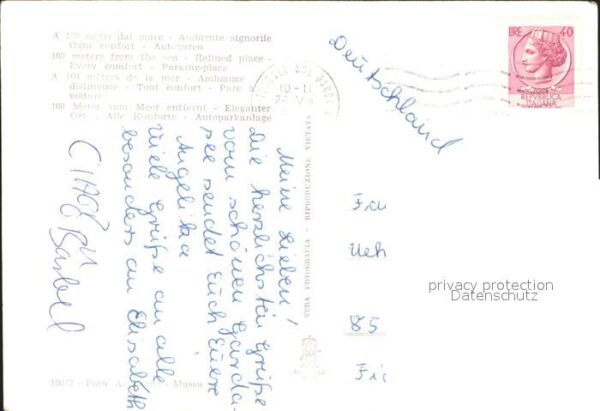 A 100 metri dal mare - Ambiente signorile
Ogni confort - Autoparco
100 meters from the sea - Refined place -
Every comfort - Parking-place
A 100 mètres de la mer - Ambiance
distinguee - Tout confort - Parc a
voiture
100 Meter vom Meer entfernt - Eleganter
Ort - Alle Konforts - Autoparkanlage
Deutschland
LIRE 40
REPVBBLICA
ITALIANA
10-11
Meine Lieben!
Die herzlichsten Grüße
vom schönen Garda-
see sendet Euch Euere
Angelika
Viele Grüße an alle
besonders an Elisabeth
CIAO
Bärbel
VERA FOTOGRAFIA - RIPRODUZIONE VIETATA
Fra
Ueh
85
privacy protection
Datenschutz
Foto